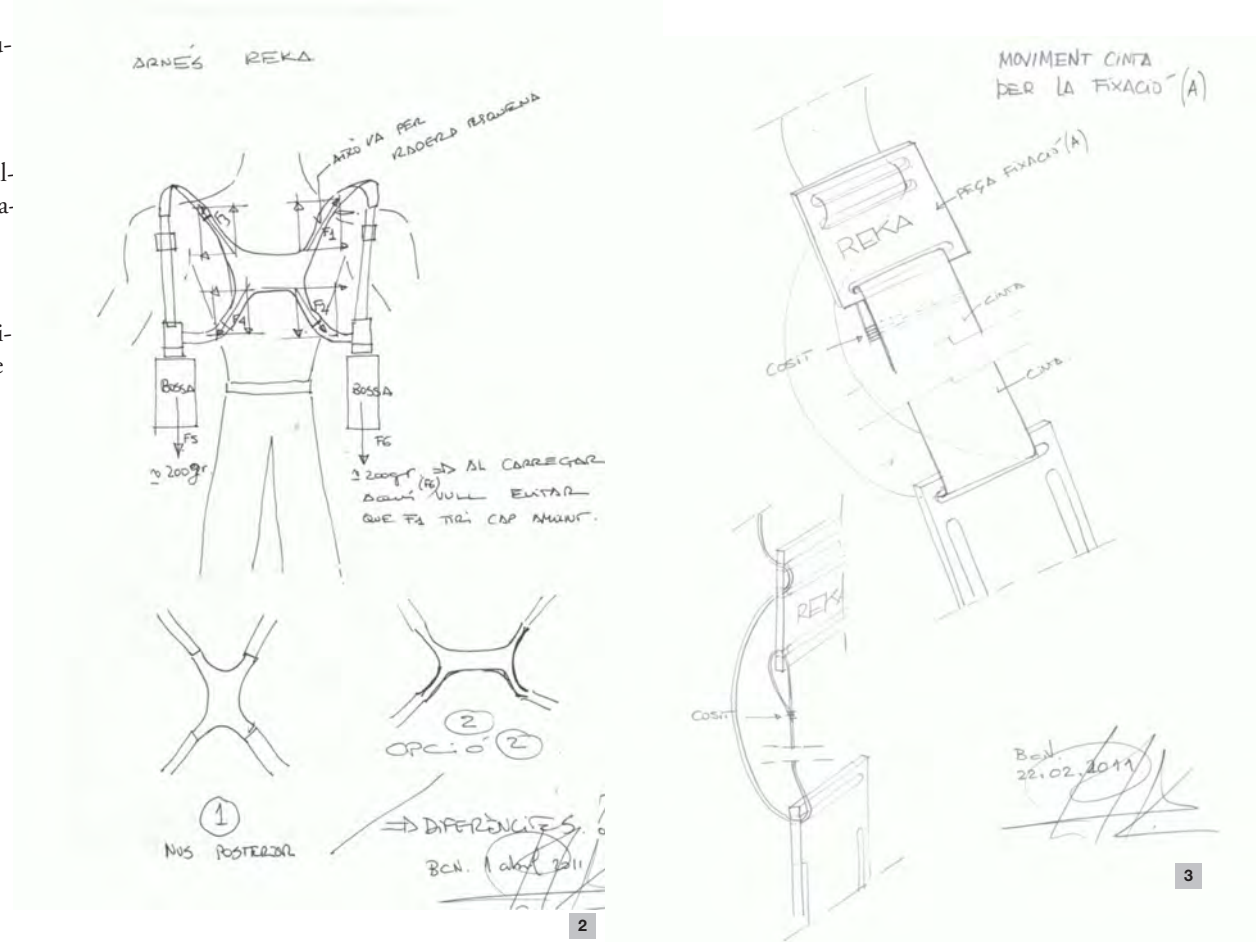 u-
l-
a-
i-
e
ARNÉS REKA
AIXÒ VA PER
RADERA ESQUENA
F3
F1
F4
F2
BOSSA
BOSSA
F5
F6
≃ 200gr.
≃ 200gr. ⇒ AL CARREGAR
AQUÍ (F6) VULL EVITAR
QUE F1 TIRI CAP AMUNT.
1
NUS POSTERIOR
2
OPCIÓ 2
⇒ DIFERÈNCIES
BCN. 1 abril 2011
2
MOVIMENT CINTA
PER LA FIXACIÓ (A)
PEÇA FIXACIÓ (A)
REKA
CINTA
COSIT
CINTA
REKA
COSIT
BCN
22.02.2011
3